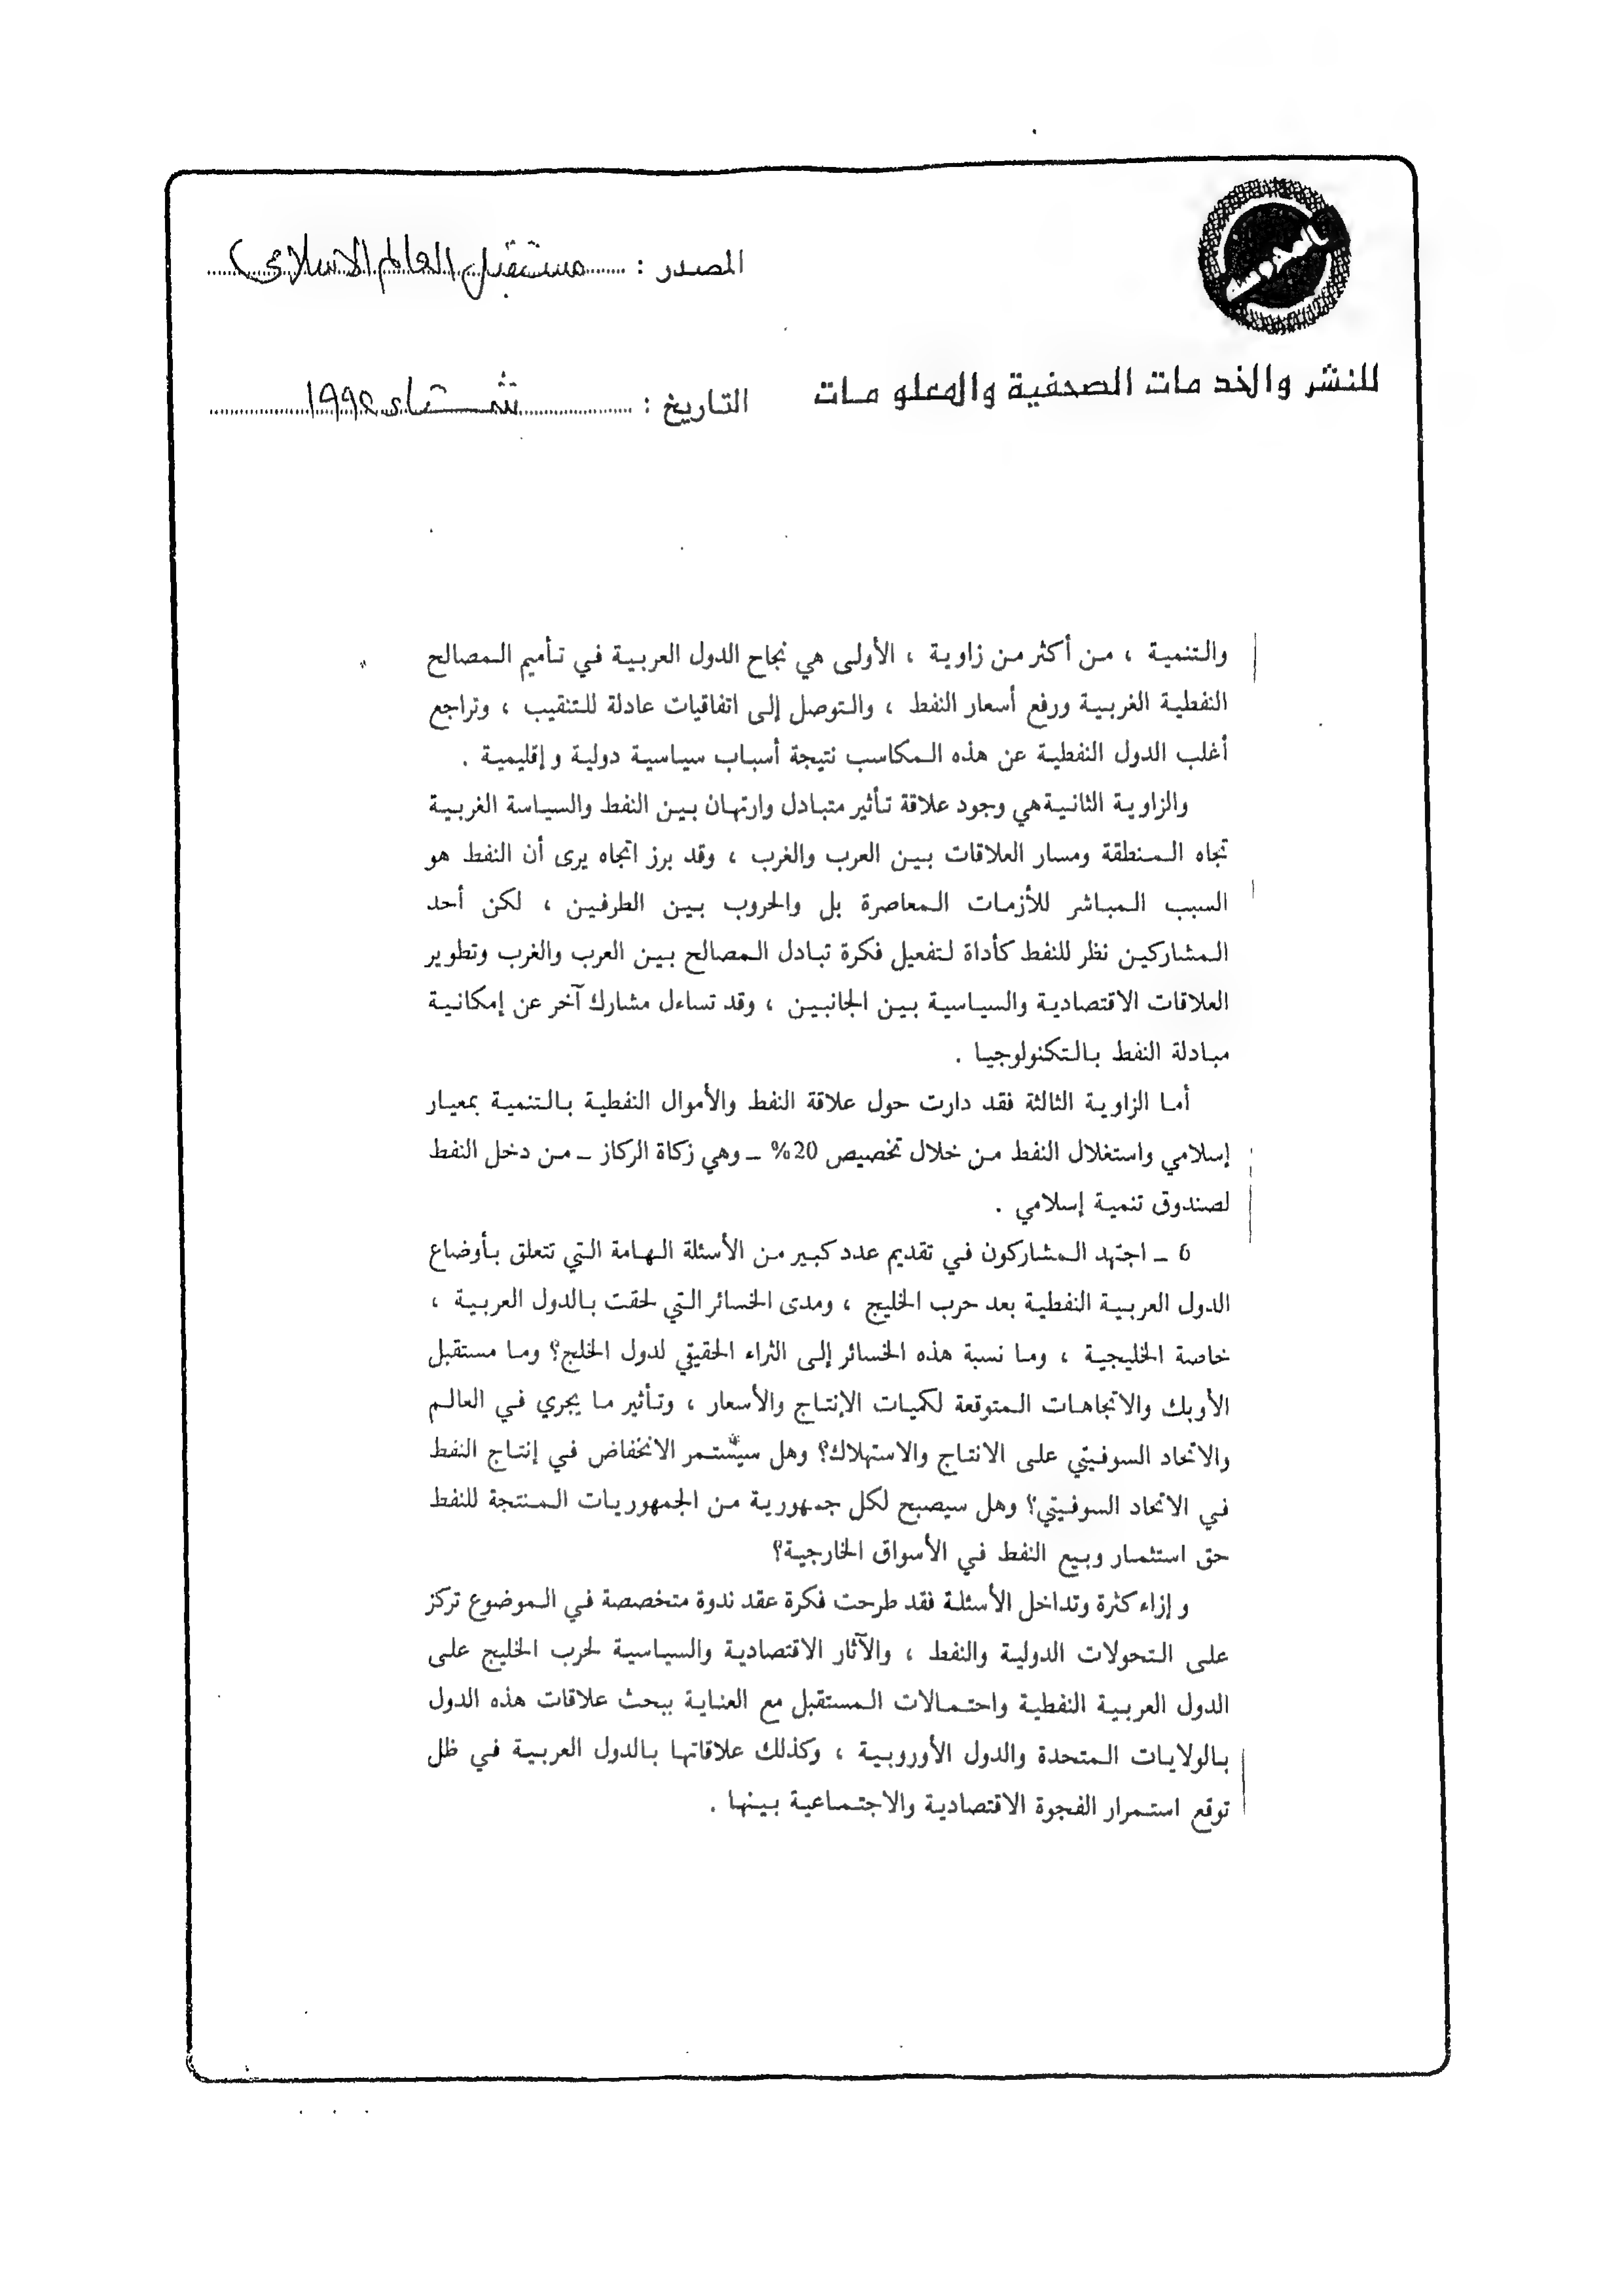 المصدر : مستقبل العالم الاسلامى
للنشر والخدمات الصحفية والمعلومات
التاريخ : شتاء ١٩٩٢
والتنمية ، من أكثر من زاوية ، الأولى هي نجاح الدول العربية في تأميم المصالح
النفطية الغربية ورفع أسعار النفط ، والتوصل إلى اتفاقيات عادلة للتنقيب ، وتراجع
أغلب الدول النفطية عن هذه المكاسب نتيجة أسباب سياسية دولية وإقليمية .
والزاوية الثانية هي وجود علاقة تأثير متبادل وارتهان بين النفط والسياسة الغربية
تجاه المنطقة ومسار العلاقات بين العرب والغرب ، وقد برز اتجاه يرى أن النفط هو
السبب المباشر للأزمات المعاصرة بل والحروب بين الطرفين ، لكن أحد
المشاركين نظر للنفط كأداة لتفعيل فكرة تبادل المصالح بين العرب والغرب وتطوير
العلاقات الاقتصادية والسياسية بين الجانبين ، وقد تساءل مشارك آخر عن إمكانية
مبادلة النفط بالتكنولوجيا .
أما الزاوية الثالثة فقد دارت حول علاقة النفط والأموال النفطية بالتنمية بمعيار
إسلامي واستغلال النفط من خلال تخصيص 20% ـ وهي زكاة الركاز ـ من دخل النفط
لصندوق تنمية إسلامي .
6 ـ اجتهد المشاركون في تقديم عدد كبير من الأسئلة الهامة التي تتعلق بأوضاع
الدول العربية النفطية بعد حرب الخليج ، ومدى الخسائر التي لحقت بالدول العربية ،
خاصة الخليجية ، وما نسبة هذه الخسائر إلى الثراء الحقيقي لدول الخلج؟ وما مستقبل
الأوبك والاتجاهات المتوقعة لكميات الإنتاج والأسعار ، وتأثير ما يجري في العالم
والاتحاد السوفيتي على الانتاج والاستهلاك؟ وهل سيستمر الانخفاض في إنتاج النفط
في الاتحاد السوفيتي؟ وهل سيصبح لكل جمهورية من الجمهوريات المنتجة للنفط
حق استثمار وبيع النفط في الأسواق الخارجية؟
وإزاء كثرة وتداخل الأسئلة فقد طرحت فكرة عقد ندوة متخصصة في الموضوع تركز
على التحولات الدولية والنفط ، والآثار الاقتصادية والسياسية لحرب الخليج على
الدول العربية النفطية واحتمالات المستقبل مع العناية ببحث علاقات هذه الدول
بالولايات المتحدة والدول الأوروبية ، وكذلك علاقاتها بالدول العربية في ظل
توقع استمرار الفجوة الاقتصادية والاجتماعية بينها .